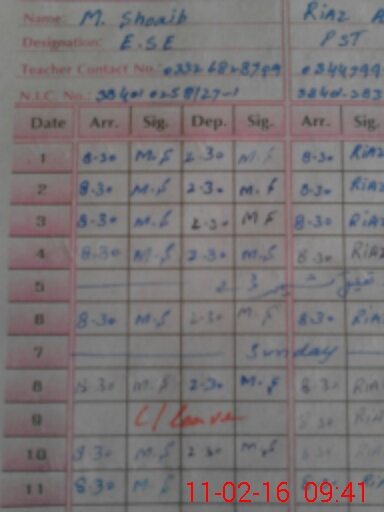 Name: M. Shoaib Riaz A
Designation: E.S.E PST
Teacher Contact No.: 0344799
N.I.C. No.:
Date Arr. Sig. Dep. Sig. Arr. Sig.
1 8-30 M.S 2-30 M.S 8-30 Riaz
2 8-30 M.S 2-30 M.S 8-30 Riaz
3 8-30 M.S 2-30 M S 8-30 Riaz
4 8-30 M.S 2-30 M.S 8-30 Riaz
5
6 8-30 M.S 2-30 M.S 8-30 Riaz
7 Sunday
8 8-30 M.S 2-30 M.S 8-30 Riaz
9 C/Leave 8-30 Riaz
10 8-30 M.S 2-30 M.S
11 8-30 M.S
11-02-16 09:41